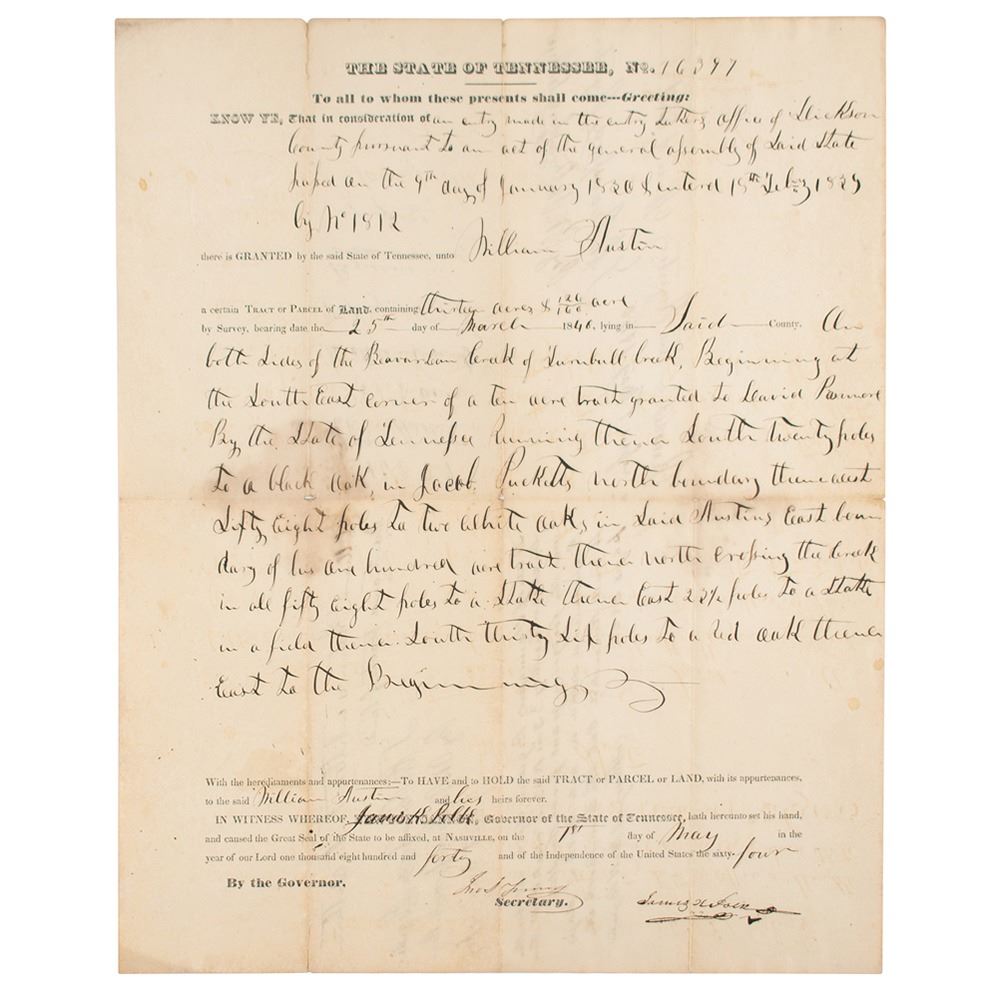 THE STATE OF TENNESSEE, No. 16397
To all to whom these presents shall come---Greeting:
KNOW YE, That in consideration of an entry made in the entry takers office of Dickson
County pursuant to an act of the general assembly of Said State
passed on the 9th day of January 1830 & enterd 18th Feby 1839
by No 1812
there is GRANTED by the said State of Tennessee, unto William Austin
a certain TRACT OR PARCEL OF Land, containing thirteen acres & 120/160 acre
by Survey, bearing date the 25th day of March 1840, lying in Said County. On
both Sides of the Beaverdam Creek of Turnbull Creek, Beginning at
the South East corner of a ten acre tract granted to David Pasmore
By the State of Tennessee Running thence South twenty poles
to a black oak, in Jacob Pucketts north boundary thence west
fifty Eight poles to two white oaks, in Said Austins East boun
dary of his one hundred acre tract thence north crossing the Creek
in all fifty eight poles to a Stake thence East 22½ poles to a Stake
in a field thence South thirty Six poles to a red oak thence
East to the Beginning
With the hereditaments and appurtenances;—To HAVE and to HOLD the said TRACT or PARCEL or LAND, with its appurtenances,
to the said William Austin and his heirs forever.
IN WITNESS WHEREOF, James K. Polk, Governor of the State of Tennessee, hath hereunto set his hand,
and caused the Great Seal of the State to be affixed, at NASHVILLE, on the 1st day of May in the
year of our Lord one thousand eight hundred and forty and of the Independence of the United States the sixty-four
By the Governor.
Jno S Young
Secretary.
James K Polk